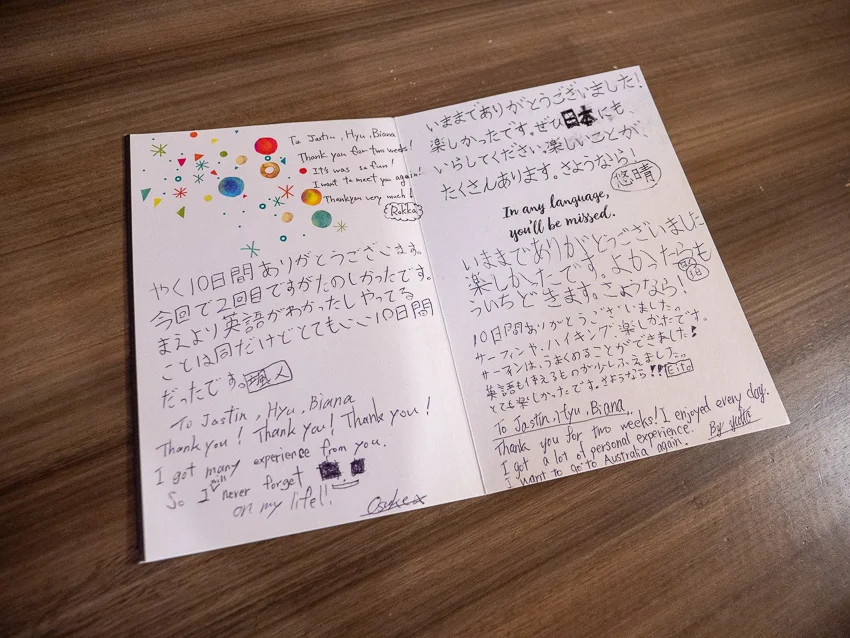 To Jastin, Hyu, Biana
Thank you for two weeks!
It's was so fun!
I want to meet you again!
Thank you very much!
Rakka
やく10日間ありがとうございます。
今回で2回目ですがたのしかったです。
まえより英語がわかったしやってる
ことは同だけどとてもいい10日間
だったです。颯人
To Jastin, Hyu, Biana
Thank you! Thank you! Thank you!
I got many experience from you.
So I will never forget
on my life!!
Osuke
いままでありがとうございました!
楽しかったです。ぜひ日本にも
いらしてください。楽しいことが
たくさんあります。さようなら!
悠晴
In any language,
you'll be missed.
いままでありがとうございました
楽しかたです。よかたらも
ういちどきます。さようなら!
10日間ありがとうございました。
サーフィンや、ハイキング、楽しかたです。
サーフィンは、うまくのることができました!
英語も使えるものが少しふえました。
とても楽しかったです。さようなら!! Eito
To Jastin, Hyu, Biana,
Thank you for two weeks! I enjoyed every day.
I got a lot of personal experience.
I want to go to Australia again.
By yuto